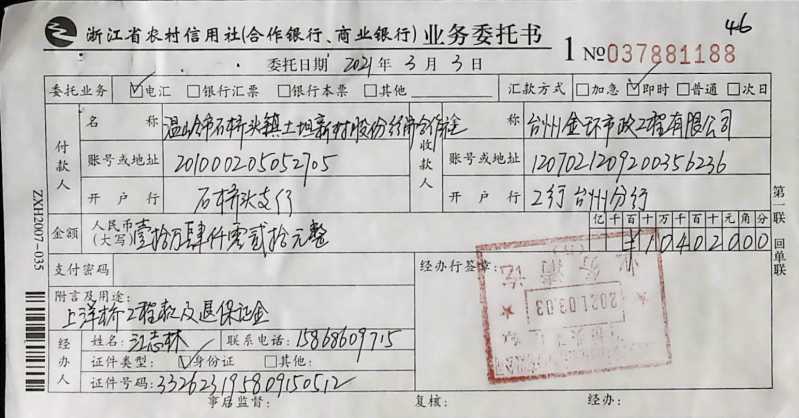 46
浙江省农村信用社(合作银行、商业银行)业务委托书 1 No037881188
委托日期 2021年3月3日
委托业务 ☑电汇 □银行汇票 □银行本票 □其他 汇款方式 □加急 ☑即时 □普通 □次日
付款人 名称 温岭市石桥头镇土坦新村股份经济合作社 收款人 名称 台州金环市政工程有限公司
账号或地址 201000205052705 账号或地址 1207021209200356236
开户行 石桥头支行 开户行 工行台州分行
金额 人民币(大写) 壹拾万肆仟零贰拾元整 亿千百十万千百十元角分
¥10402000
支付密码 经办行签章:
附言及用途:
上洋桥工程款及退保证金
经办人 姓名: 江志林 联系电话: 15868609715
证件类型: ☑身份证 □其他:
证件号码: 332623195809150512
事后监督: 复核: 经办:
第一联 回单联
ZXH2007-035
2021.03.03